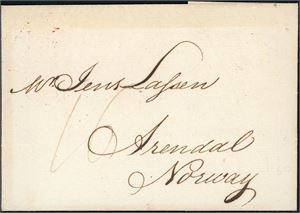 Mr Jens Lassen
Arendal
Norway